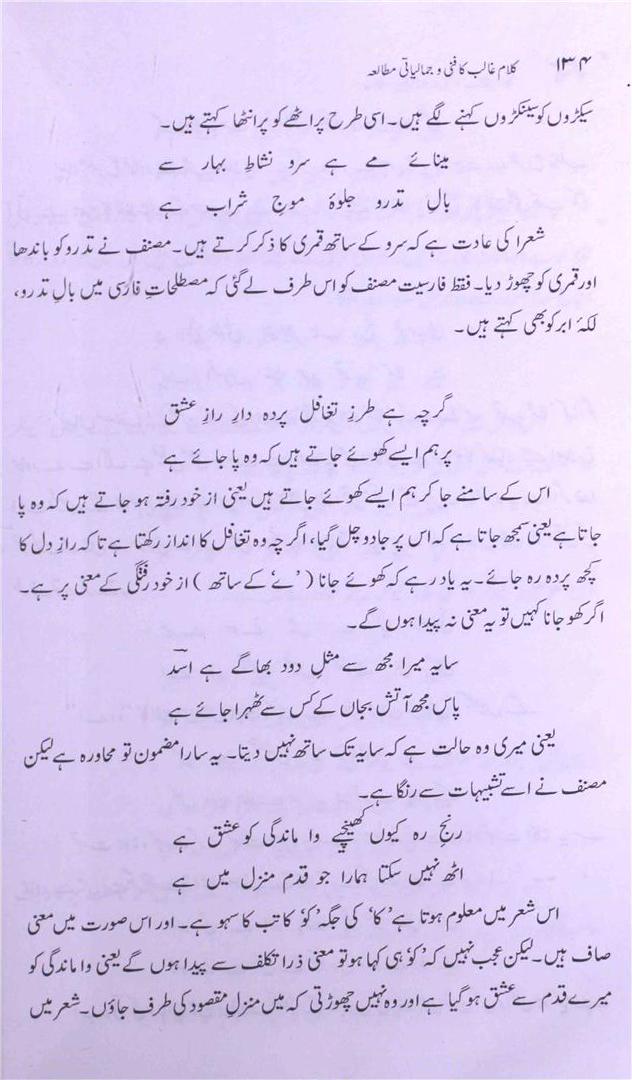 ۱۳۴ کلام غالب کا فنی و جمالیاتی مطالعہ
سیکڑوں کو سینکڑوں کہنے لگے ہیں۔ اسی طرح پراٹھے کو پرانٹھا کہتے ہیں۔
مینائے مے ہے سرو نشاطِ بہار سے
بالِ تدرو جلوۂ موجِ شراب ہے
شعرا کی عادت ہے کہ سرو کے ساتھ قمری کا ذکر کرتے ہیں۔ مصنف نے تدرو کو باندھا
اور قمری کو چھوڑ دیا۔ فقط فارسیت مصنف کو اس طرف لے گئی کہ مصطلحاتِ فارسی میں بالِ تدرو،
لکۂ ابر کو بھی کہتے ہیں۔
گرچہ ہے طرزِ تغافل پردہ دارِ رازِ عشق
پر ہم ایسے کھوئے جاتے ہیں کہ وہ پا جائے ہے
اس کے سامنے جا کر ہم ایسے کھوئے جاتے ہیں یعنی از خود رفتہ ہو جاتے ہیں کہ وہ پا
جاتا ہے یعنی سمجھ جاتا ہے کہ اس پر جادو چل گیا، اگرچہ وہ تغافل کا انداز رکھتا ہے تا کہ رازِ دل کا
کچھ پردہ رہ جائے۔ یہ یاد رہے کہ کھوئے جانا (’ے‘ کے ساتھ) از خود رفتگی کے معنی پر ہے۔
اگر کھو جانا کہیں تو یہ معنی نہ پیدا ہوں گے۔
سایہ میرا مجھ سے مثلِ دود بھاگے ہے اسدؔ
پاس مجھ آتش بجاں کے کس سے ٹھہرا جائے ہے
یعنی میری وہ حالت ہے کہ سایہ تک ساتھ نہیں دیتا۔ یہ سارا مضمون تو محاورہ ہے لیکن
مصنف نے اسے تشبیہات سے رنگا ہے۔
رنجِ رہ کیوں کھینچیے وا ماندگی کو عشق ہے
اٹھ نہیں سکتا ہمارا جو قدم منزل میں ہے
اس شعر میں معلوم ہوتا ہے ’کا‘ کی جگہ ’کو‘ کاتب کا سہو ہے۔ اور اس صورت میں معنی
صاف ہیں۔ لیکن عجب نہیں کہ ’کو‘ ہی کہا ہو تو معنی ذرا تکلف سے پیدا ہوں گے یعنی وا ماندگی کو
میرے قدم سے عشق ہو گیا ہے اور وہ نہیں چھوڑتی کہ میں منزلِ مقصود کی طرف جاؤں۔ شعر میں